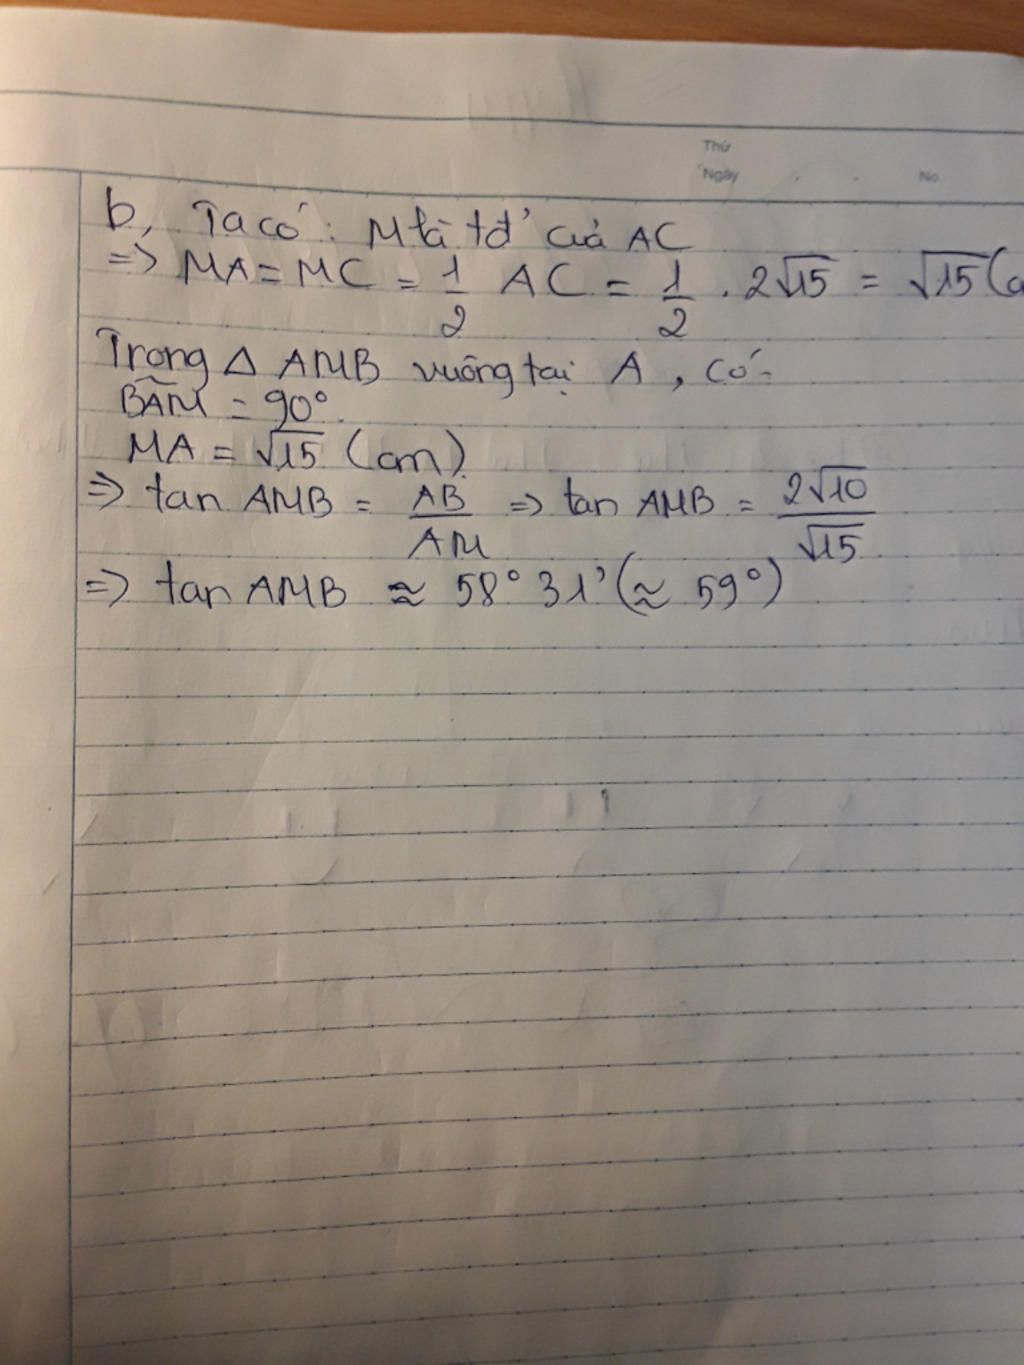 Thứ
Ngày No
b, Ta có: M là tđ' của AC
=> MA = MC = 1/2 AC = 1/2 . 2√15 = √15 (c
Trong △ AMB vuông tại A, có:
BAM = 90°
MA = √15 (cm)
=> tan AMB = AB/AM => tan AMB = 2√10/√15
=> tan AMB ≈ 58° 31' (≈ 59°)